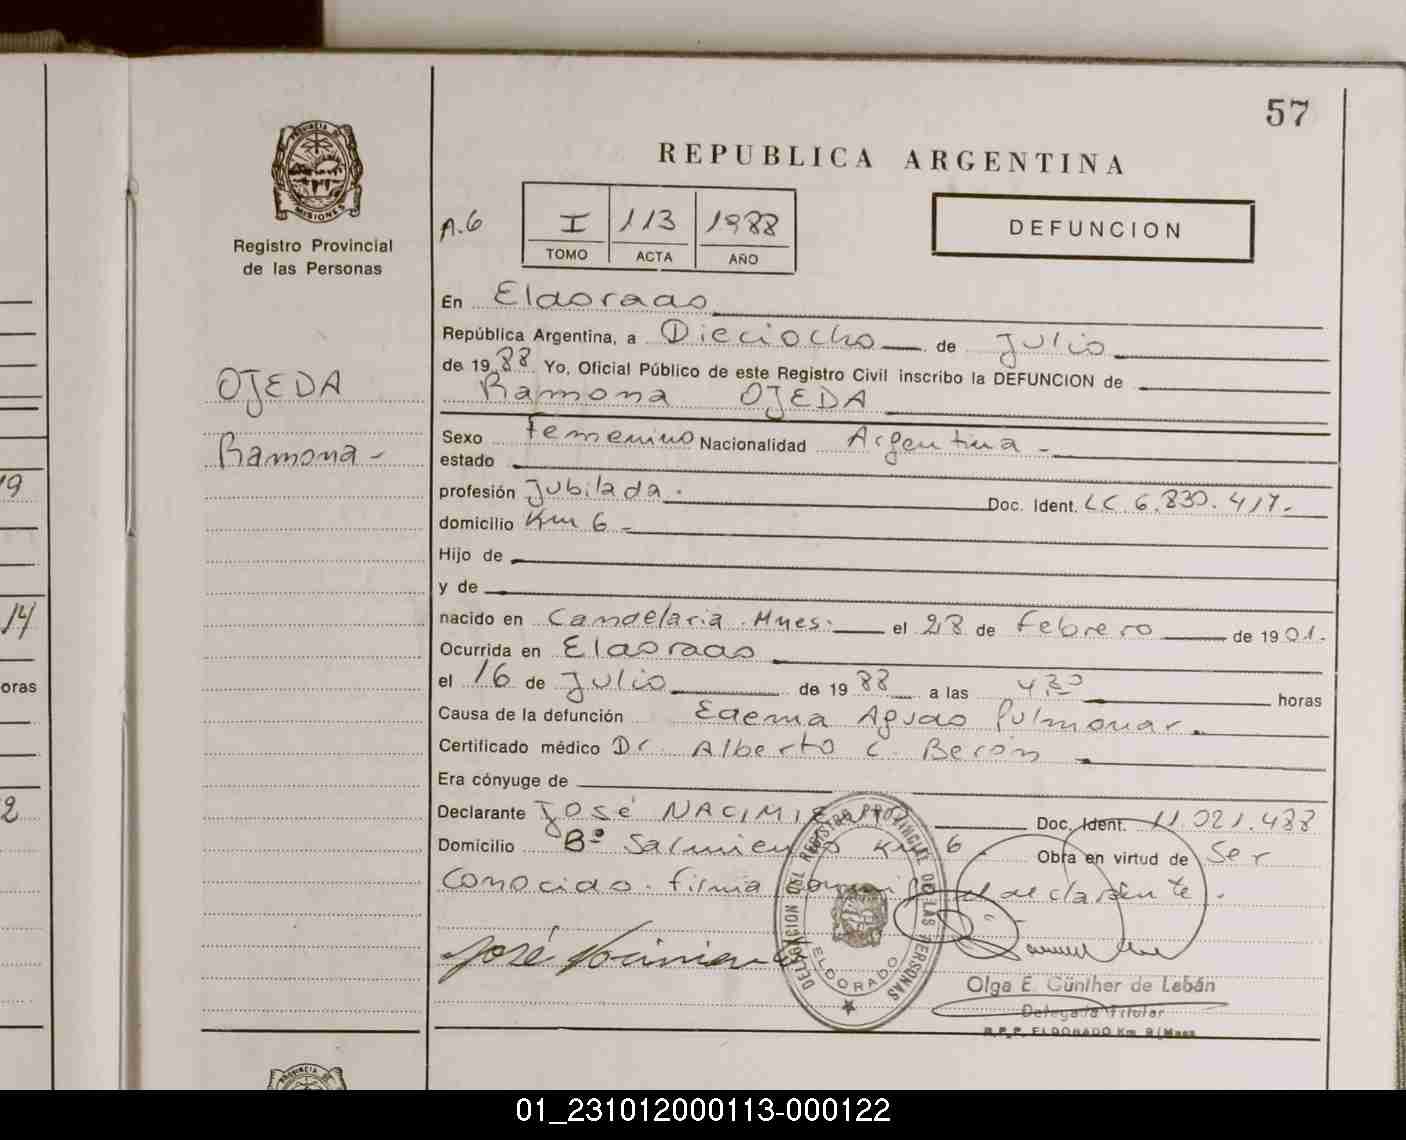 57
PROVINCIA DE
MISIONES
Registro Provincial
de las Personas
REPUBLICA ARGENTINA
A.6
I 113 1988
TOMO ACTA AÑO
DEFUNCION
OJEDA
Ramona -
En Eldorado
República Argentina, a Dieciocho de Julio
de 1988 Yo, Oficial Público de este Registro Civil inscribo la DEFUNCION de
Ramona OJEDA
Sexo Femenino Nacionalidad Argentina -
estado
profesión Jubilada. Doc. Ident. LC 6.830.417.-
domicilio Km 6 -
Hijo de
y de
nacido en Candelaria. Mnes. el 28 de Febrero de 1901.
Ocurrida en Eldorado
el 16 de Julio de 1988 a las 4,30 horas
Causa de la defunción Edema Agudo Pulmonar
Certificado médico Dr. Alberto C. Berón
Era cónyuge de
Declarante José NACIMIENTO Doc. Ident. 11.021.488
Domicilio Bº Sarmiento Km 6 - Obra en virtud de Ser
Conocido. Firma conmigo el declarante.
José Nacimiento
DELEGACION DEL REGISTRO PROVINCIAL DE LAS PERSONAS
ELDORADO
Olga E. Günther de Lebán
Delegada Titular
R.P.P. ELDORADO Km. 9 / Mnes
19
14
oras
2
01_231012000113-000122